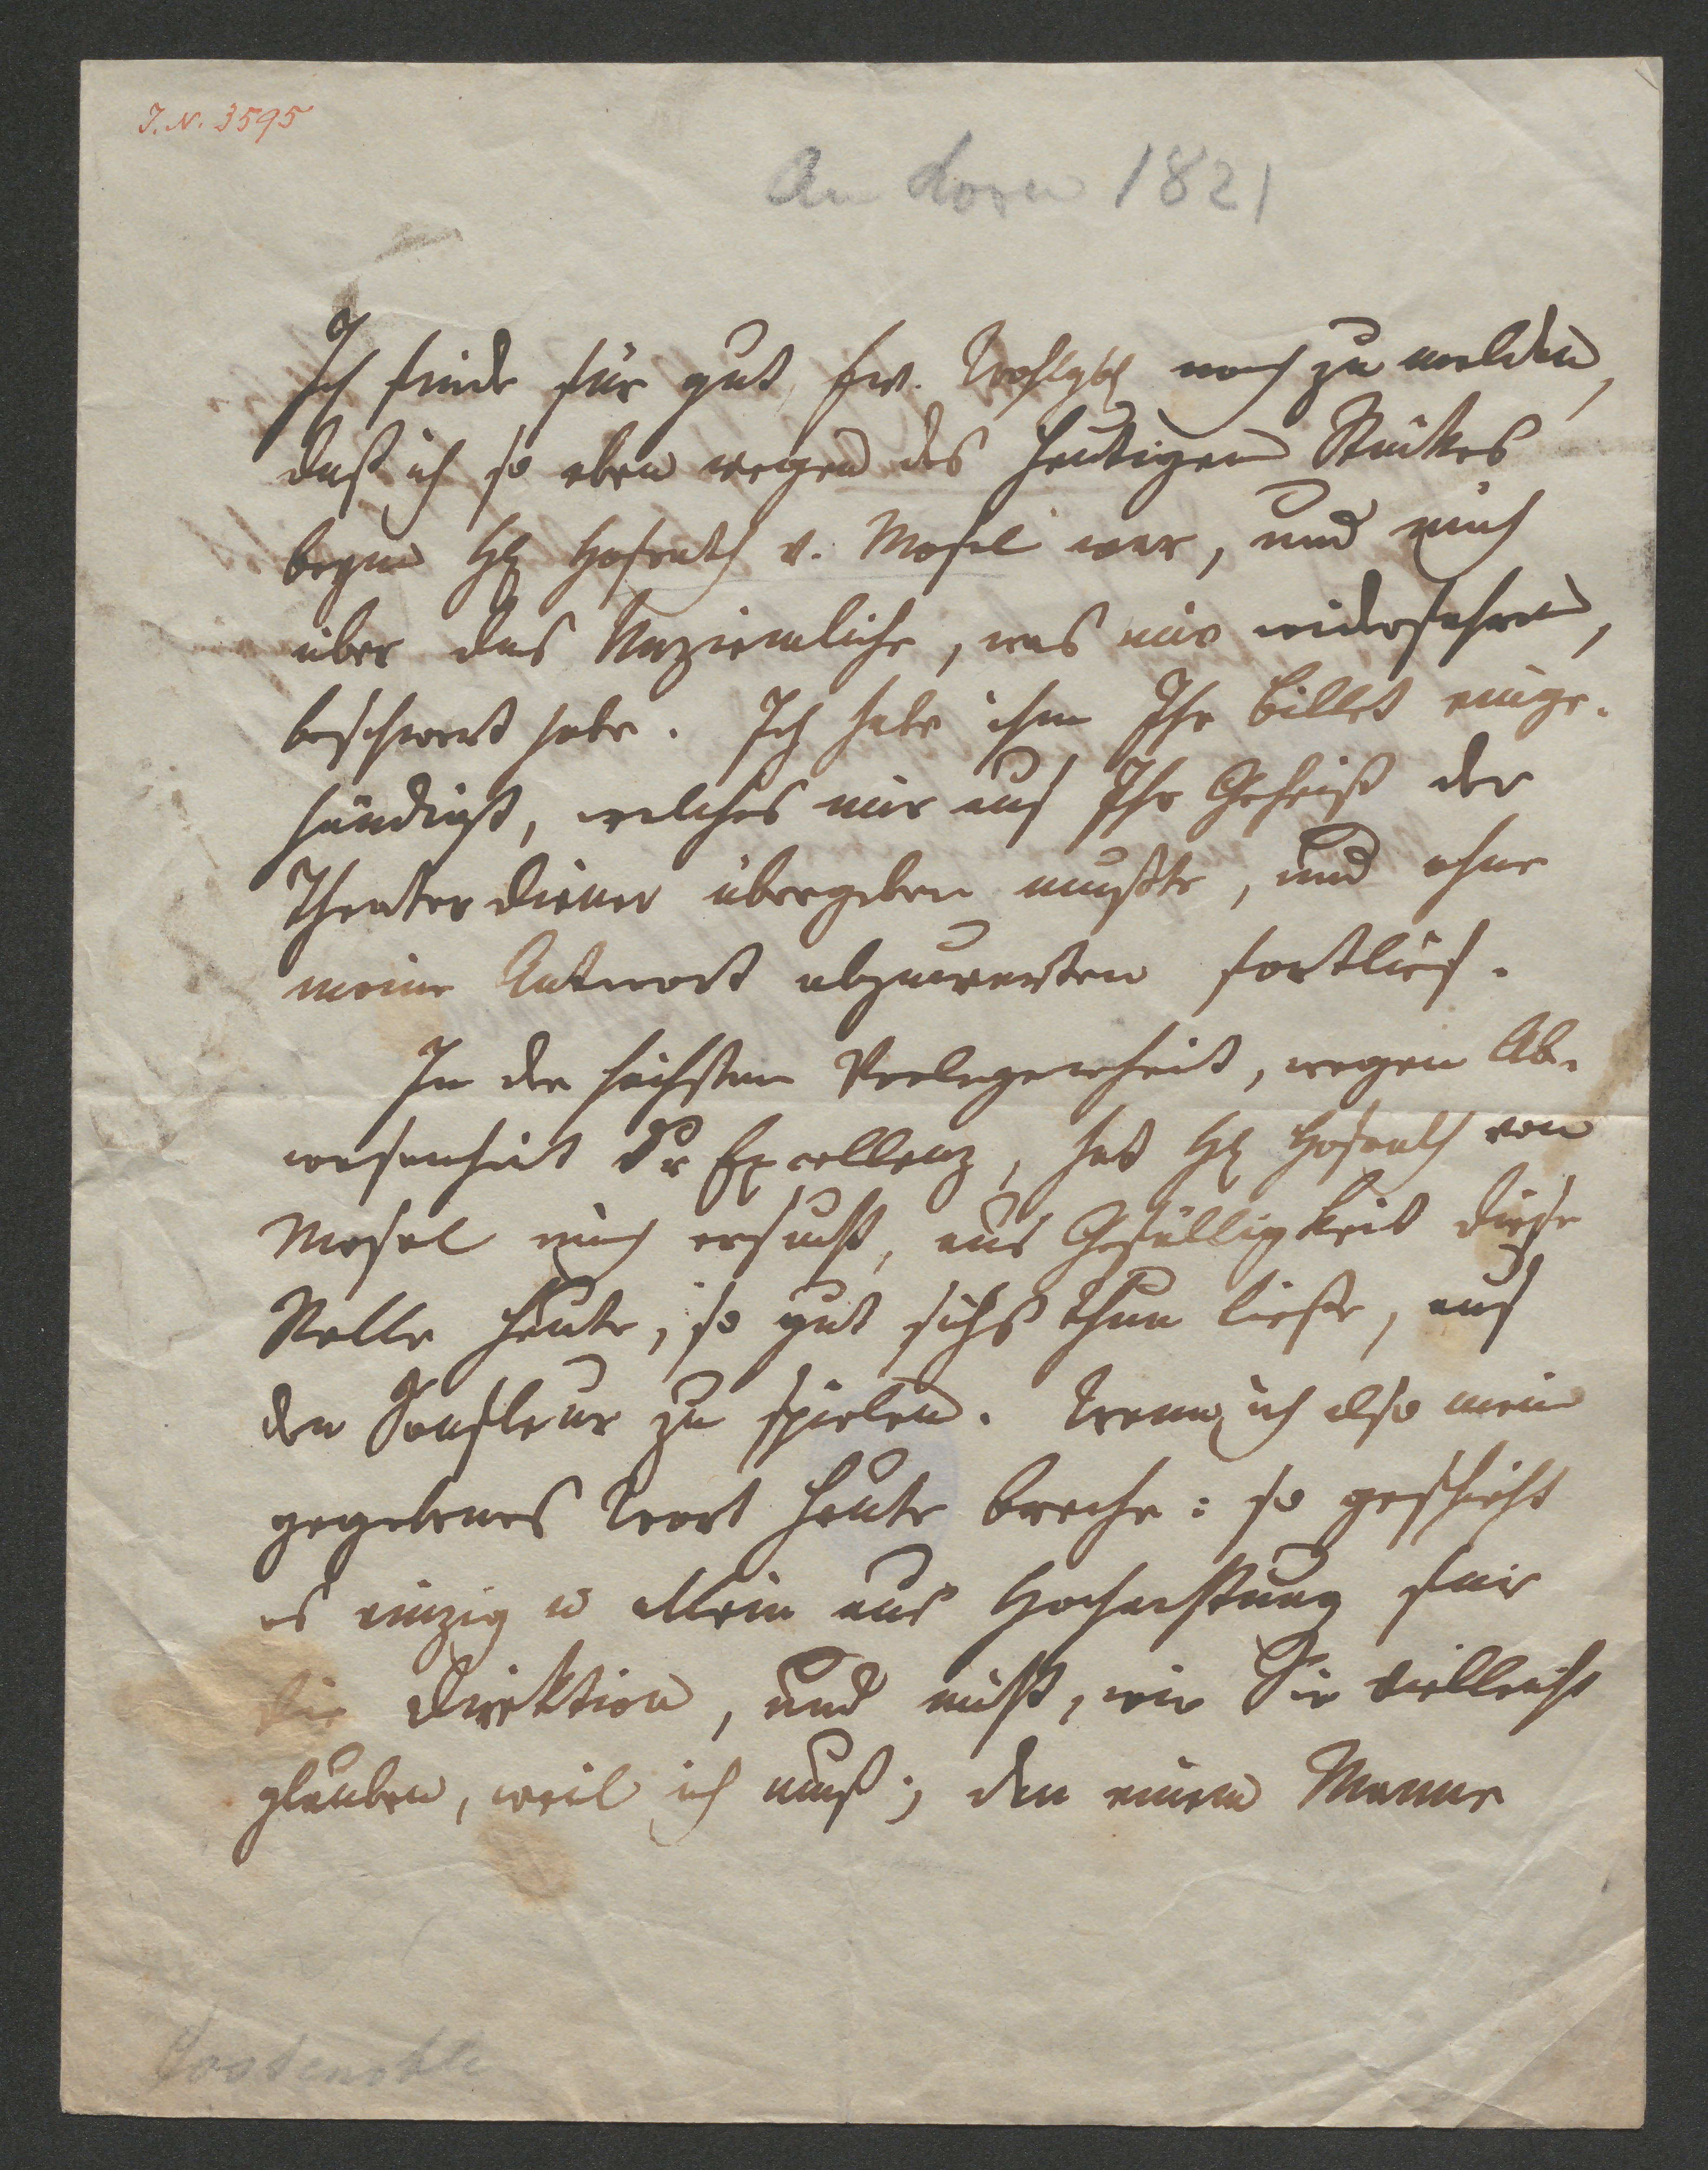 J. N. 3595
An Korn 1821
Ich finde für gut, Ew. Wohlgb noch zu melden,
daß ich so eben wegen des heutigen Stückes
beym HE Hofrath v. Mosel war, und mich
über das Unziemliche, was mir widerfahren,
beschwert habe. Ich habe ihm Ihr Billet einge-
händigt, welches mir auf Ihr Geheiß der
Theaterdiener übergeben mußte, und ohne
meine Antwort abzuwarten fortlief.
In der höchsten Verlegenheit, wegen Ab-
wesenheit Sr Excellenz, hat HE Hofrath von
Mosel mich ersucht, aus Gefälligkeit diese
Rolle heute, so gut sichs thun ließe, auf
den Soufleur zu spielen. Wenn ich also mein
gegebenes Wort heute breche: so geschieht
es einzig u allein aus Hochachtung für
die Direktion, und nicht, wie Sie vielleicht
glauben, weil ich muß; den einem Manne
Costenoble